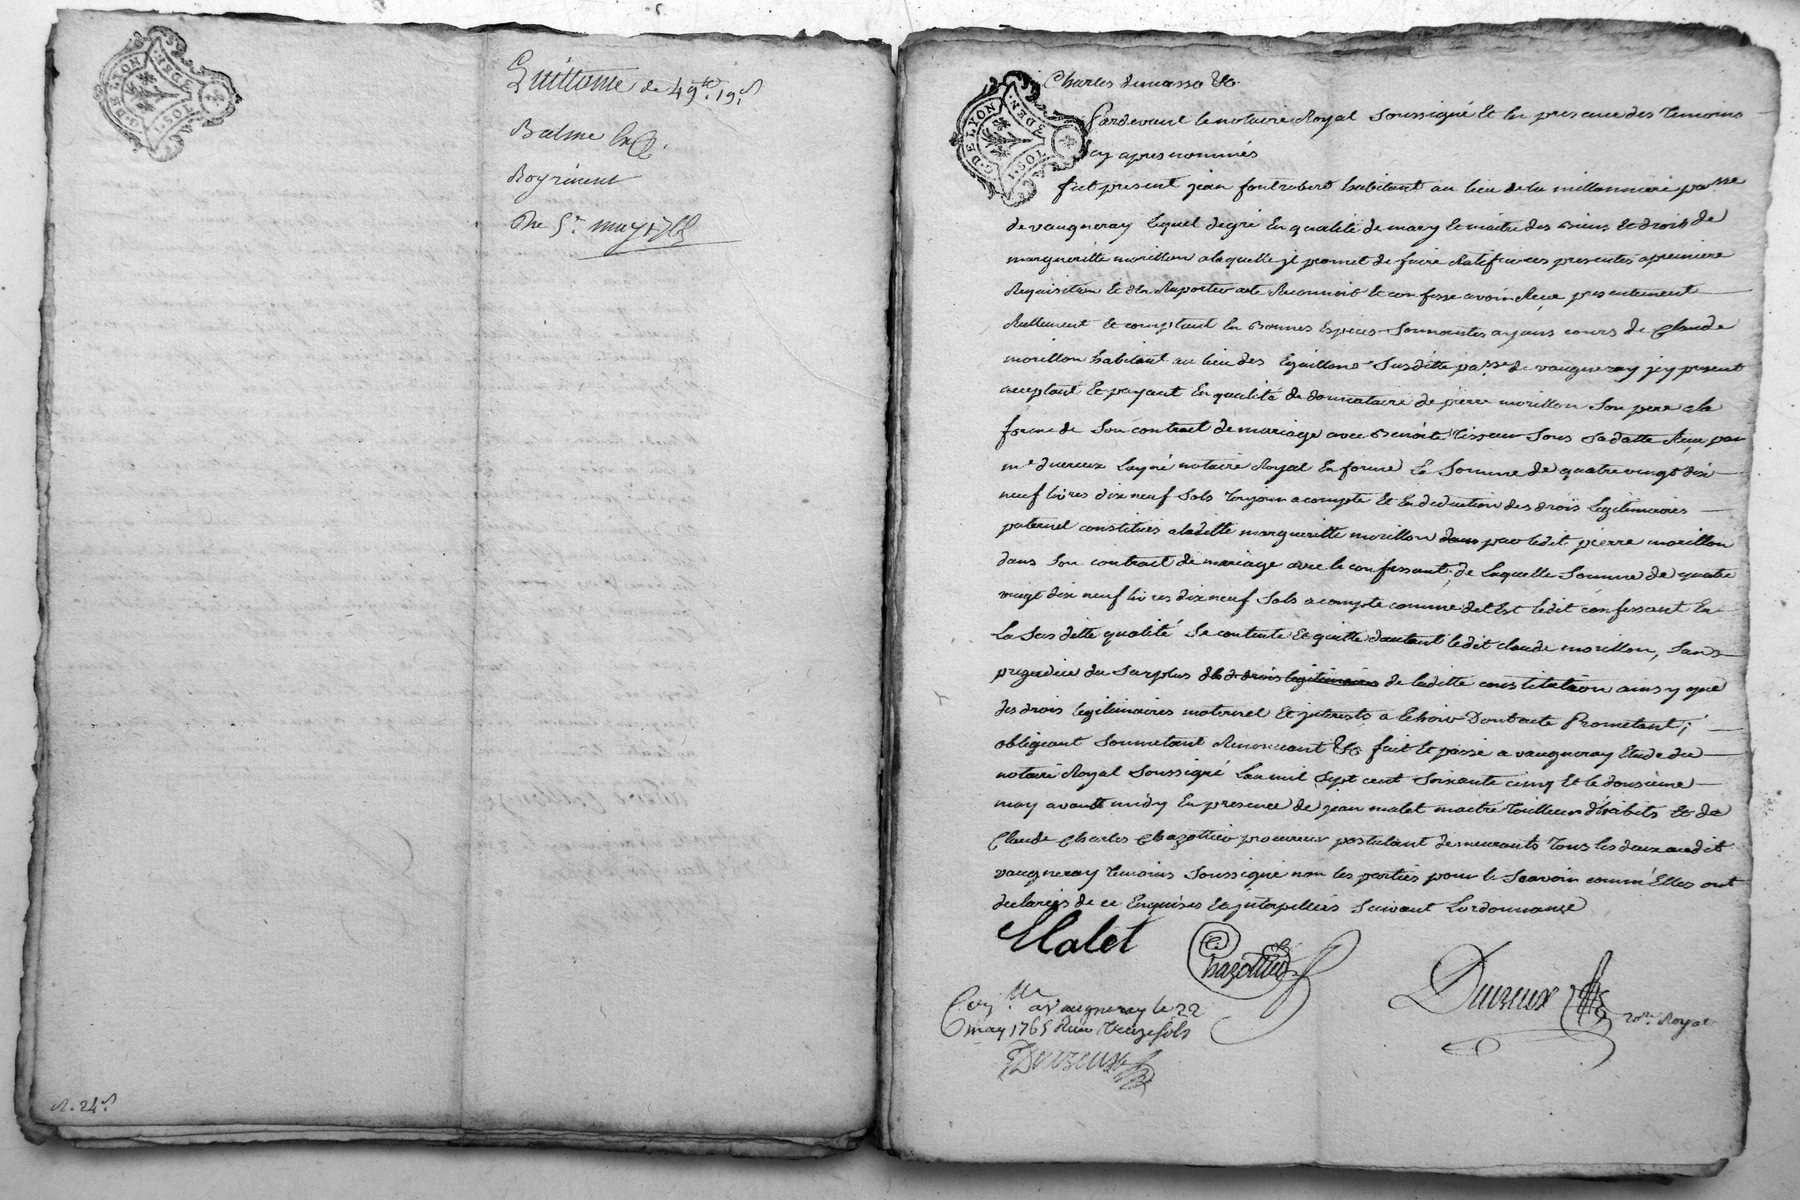 G. DE LYON
3 DEN.
1. SOL
Quittance de 49.tt 19.s
Balme
Roy
Du 5.e may 1765
R. 24.s
G. DE LYON
3 DEN.
1. SOL
Charles demasso &c.
Pardevant le notaire Royal Soussigné Et En presence des Temoins
cy apres nommés
fut present jean fontrobert habitant au lieu de la millonniere pa.sse
de vaugneray lequel degré En qualité de mary Et maitre des Biens Et droits de
margueritte morillon a laquelle jl promet de faire Ratifier ces presentes a premiere
Requisition Et d'En Raporter acte Reconnoit Et confesse avoir Reçu presentement
Reellement Et comptant En Bonnes Especes Sonnantes ayans cours de Claude
morillon habitant au lieu des Eguillons Susditte pa.sse de vaugneray jcy present
acceptant Et payant En qualité de donnataire de pierre morillon Son pere a la
forme de Son contract de mariage avec Benoite Tisseur Sous Sa datte Reçu par
m.e duereux Layné notaire Royal En forme La Somme de quatre vingt dix
neuf livres dix neuf Sols Toujour a compte Et En deduction des drois legitimaires
paternel constitués a laditte margueritte morillon dans par ledit pierre morillon
dans Son contract de mariage avec le confessant. de Laquelle Somme de quatre
vingt dix neuf livres dix neuf Sols a compte comme dit Est ledit confessant En
La Susditte qualité Se contente Et quitte d'autant ledit claude morillon, Sans
prejudice du Surplus de drois legitimaires de laditte constitution ainsy que
des drois legitimaires maternel Et jnterests a Echoir Dont acte Prometant;
obligeant Soumetant Renoncant &c fait Et passé a vaugneray Etude du
notaire Royal Soussigné L'an mil Sept cent Soixante cinq Et le douzieme
may avant midy En presence de jean malet maitre Tailleur d'habits Et de
Claude Charles Chazottier procureur postulant demeurants Tous les deux audit
vaugneray Temoins Soussigné non les parties pour ne Scavoir comm'Elles ont
declarées de ce Enquises Et jnterpellées Suivant Lordonnance
Malet
Chazottier
Duereux
no.re Royal
a Vaugneray le 22
may 1765 Reçu Treize sols
Duereux